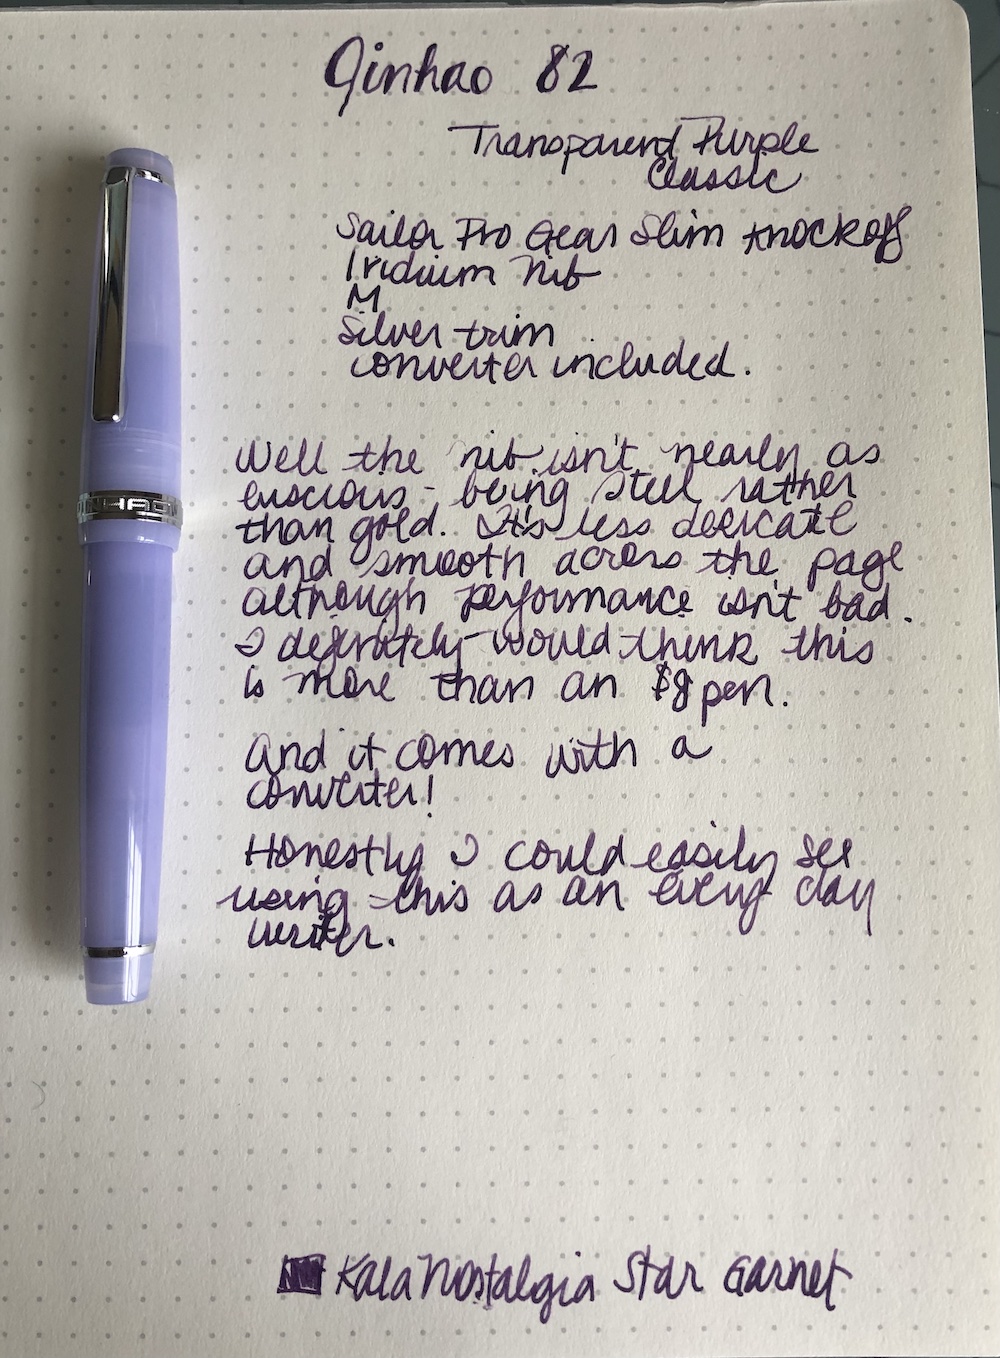 Jinhao 82
Transparent Purple
Classic
Sailor Pro Gear Slim knockoff
Iridium Nib
M
Silver trim
converter included.
Well the nib isn't nearly as
luscious - being steel rather
than gold. It's less delicate
and smooth across the page
although performance isn't bad.
I definitely would think this
is more than an $8 pen.
And it comes with a
converter!
Honestly I could easily see
using this as an every day
writer.
Kala Nostalgia Star Garnet
INHAO